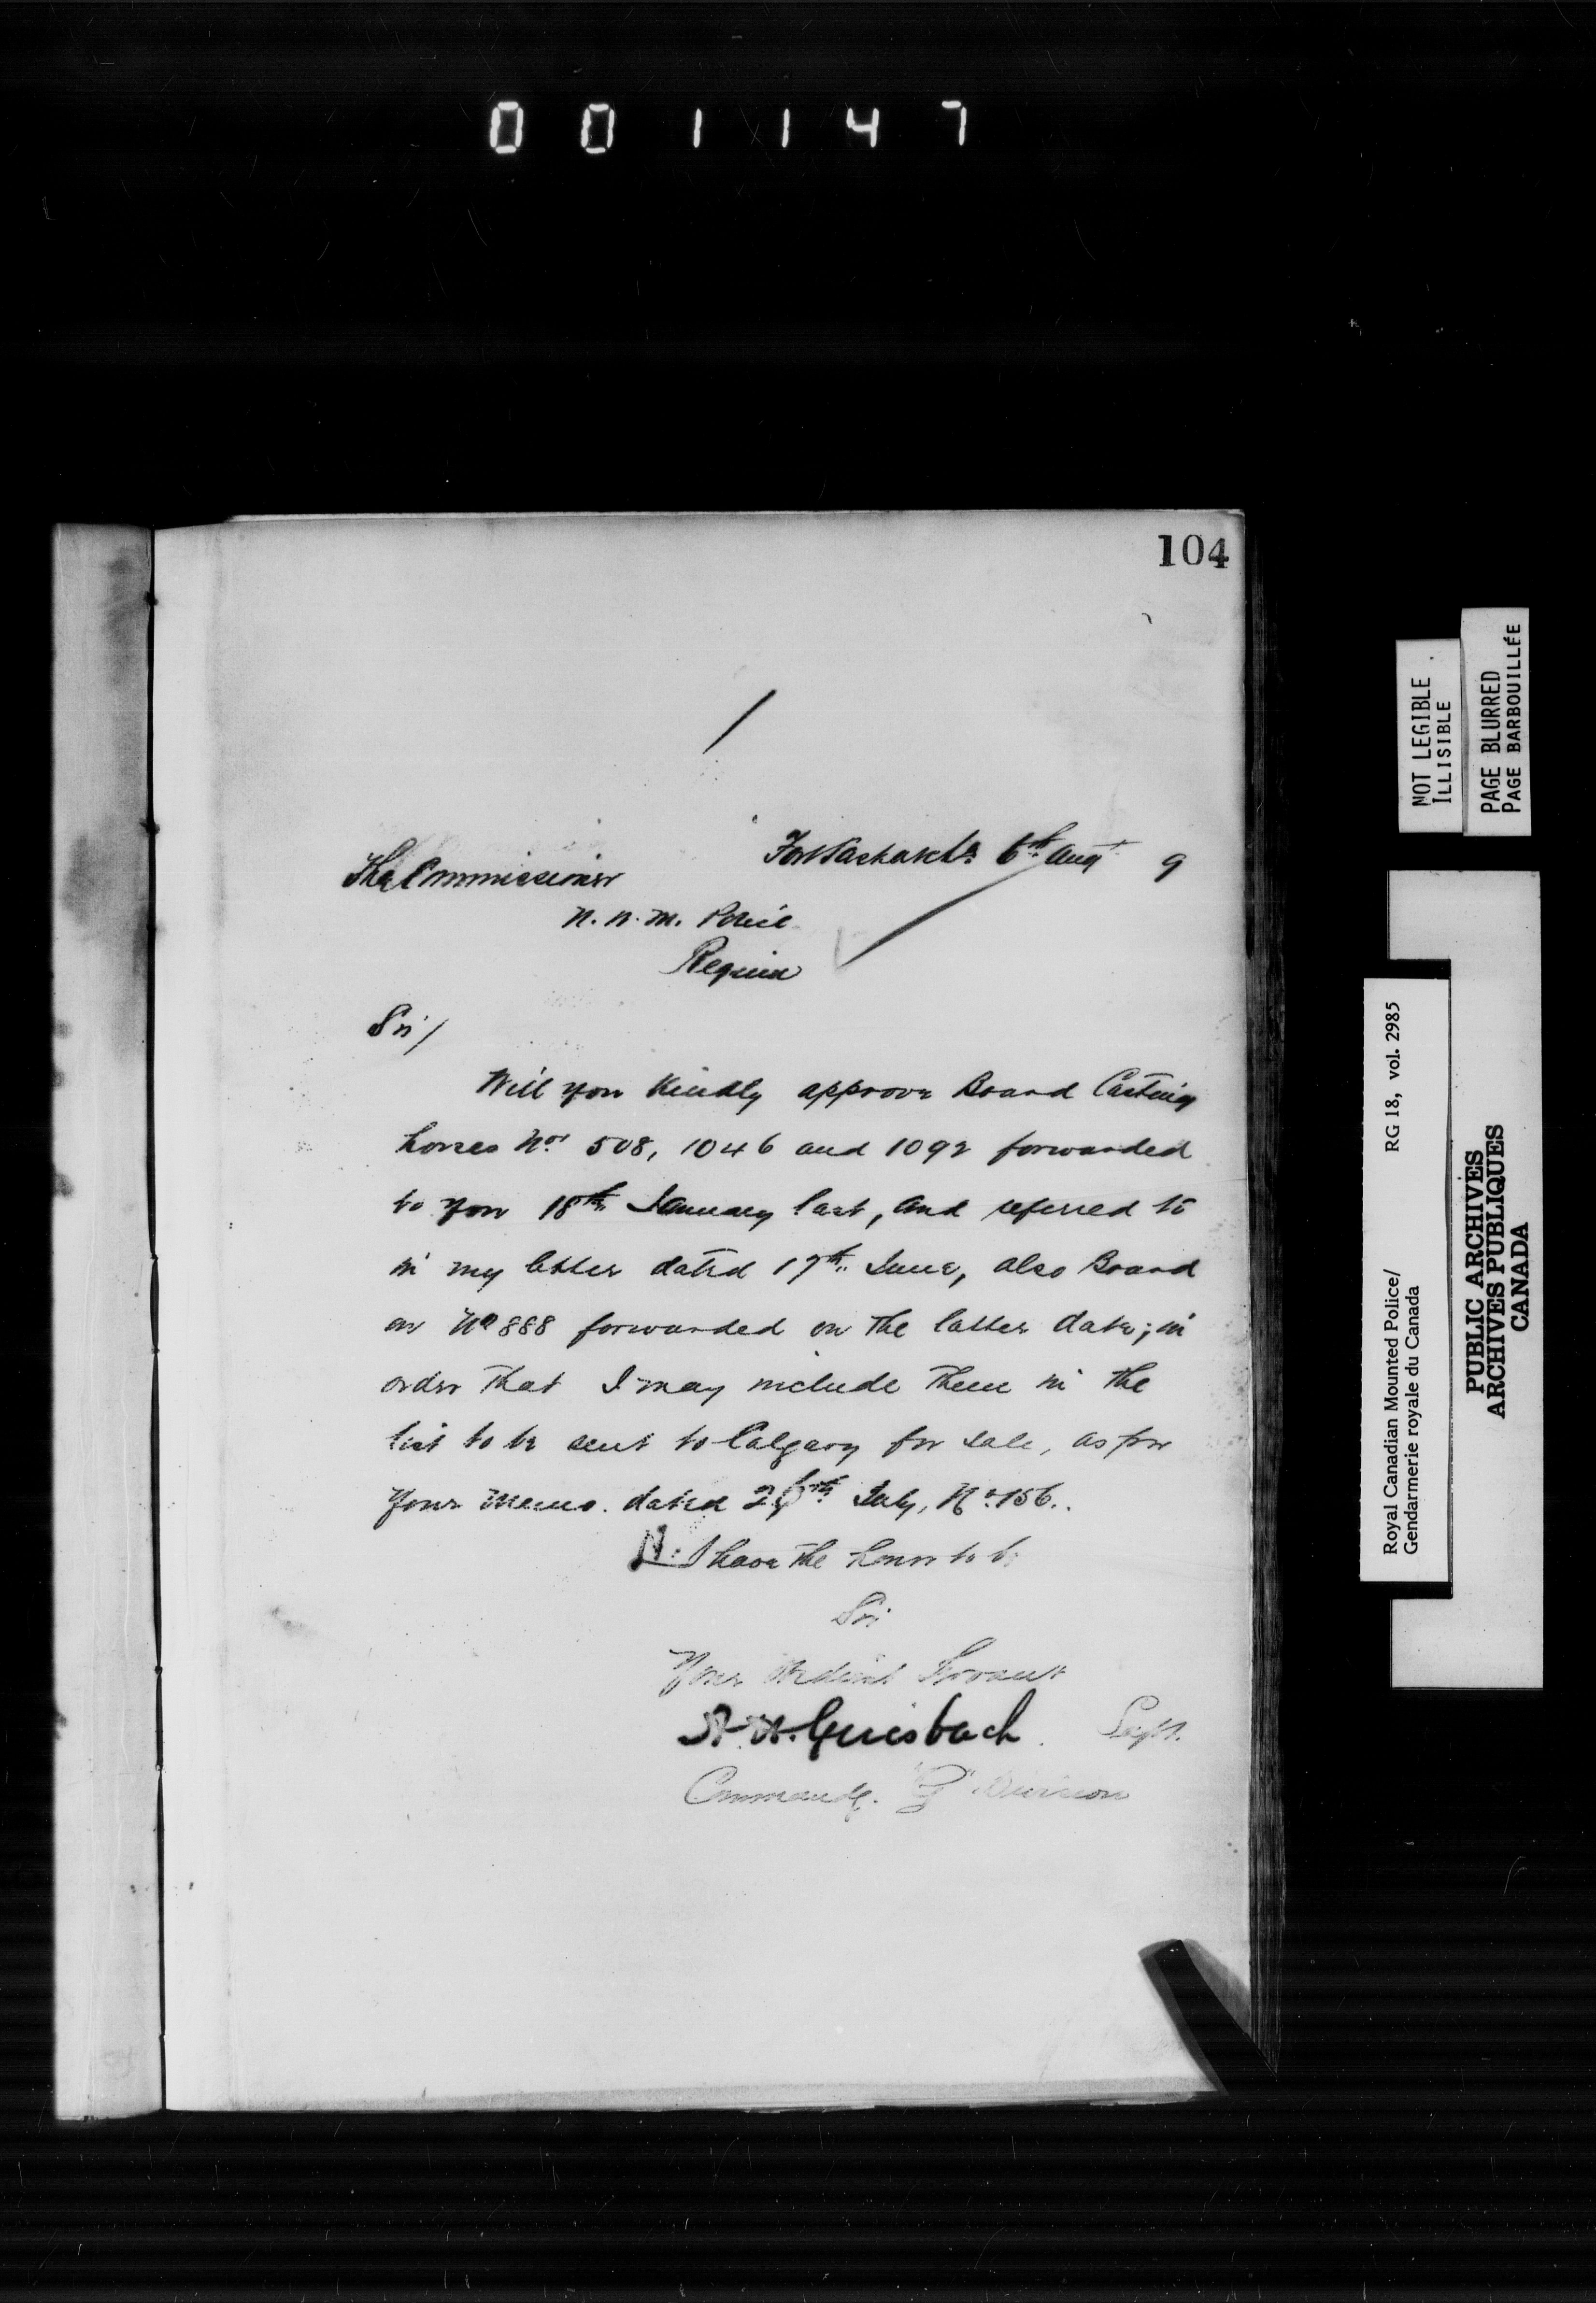 001147
104
Fort Saskatch. 6th Augt 9
The Commissioner
N. W. M. Police
Regina
Sir/
Will you kindly approve Board Casting
horses Nos 508, 1046 and 1092 forwarded
to you 18th January last, and referred to
in my letter dated 17th June, also Board
on No 888 forwarded on the latter date; in
order that I may include them in the
list to be sent to Calgary for sale, as per
your memo. dated 29th July, No 156.
I have the honor to be
Sir
Your Obedient Servant
A. H. Griesbach. Supt.
Commandg. "G" Division
NOT LEGIBLE
ILLISIBLE
PAGE BLURRED
PAGE BARBOUILLÉE
Royal Canadian Mounted Police/ RG 18, vol. 2985
Gendarmerie royale du Canada
PUBLIC ARCHIVES
ARCHIVES PUBLIQUES
CANADA